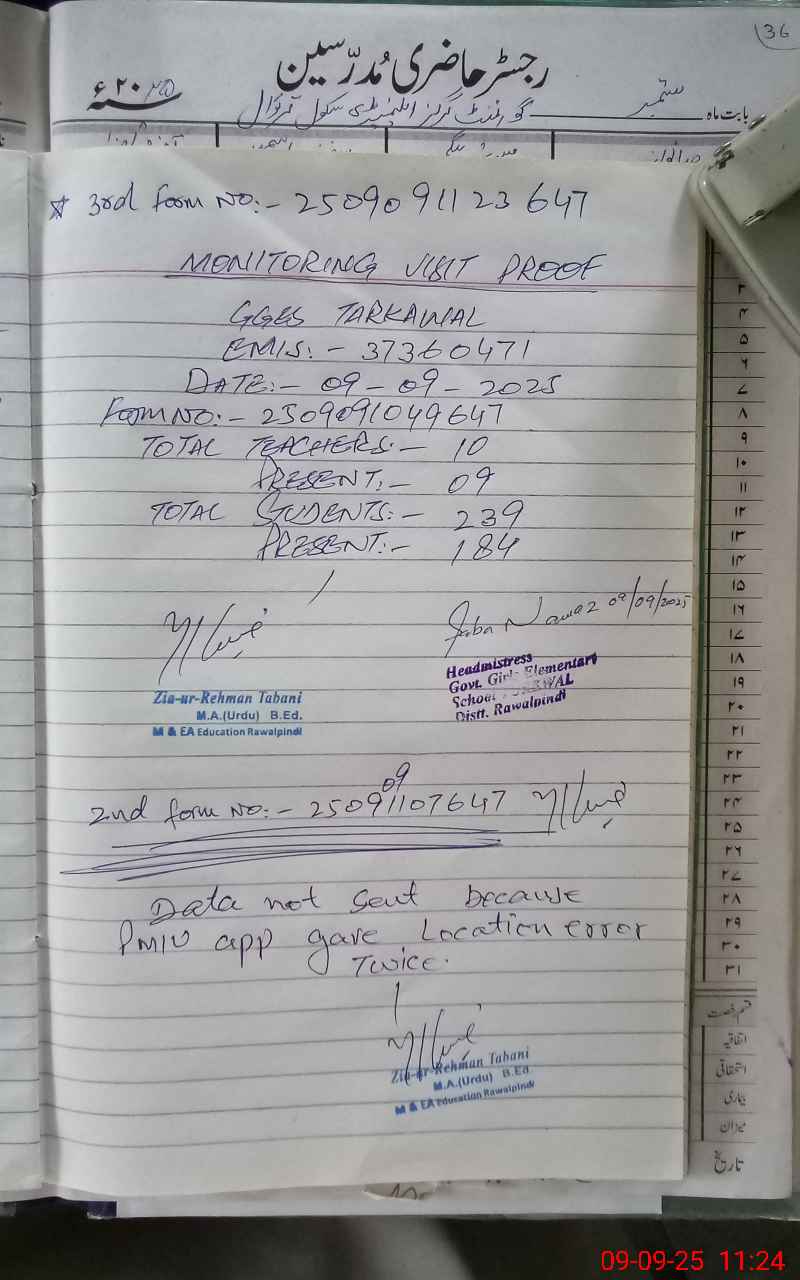 36
رجسٹر حاضری مُدرّسین
بابت ماہ ستمبر گورنمنٹ گرلز ایلیمنٹری سکول ترکوال سنہ ۲۰۲۵ء
☆ 3rd form NO:- 2509091123647
MONITORING VISIT PROOF
GGES TARKAWAL
EMIS:- 37360471
DATE:- 09-09-2025
Form NO:- 2509091049647
TOTAL TEACHERS:- 10
PRESENT:- 09
TOTAL STUDENTS:- 239
PRESENT:- 184
Saba Nawaz 09/09/2025
Zia-ur-Rehman Tabani
M.A.(Urdu) B.Ed.
M & EA Education Rawalpindi
Headmistress
Govt. Girls Elementary
School
Distt. Rawalpindi
09
2nd form NO:- 25091107647
Data not sent because
PMIU app gave Location error
Twice.
Zia-ur-Rehman Tabani
M.A.(Urdu) B.Ed.
M & EA Education Rawalpindi
۳
۴
۵
۶
۷
۸
۹
۱۰
۱۱
۱۲
۱۳
۱۴
۱۵
۱۶
۱۷
۱۸
۱۹
۲۰
۲۱
۲۲
۲۳
۲۴
۲۵
۲۶
۲۷
۲۸
۲۹
۳۰
۳۱
قسم رخصت
اتفاقیہ
استحقاقی
بیماری
میزان
تاریخ
09-09-25 11:24